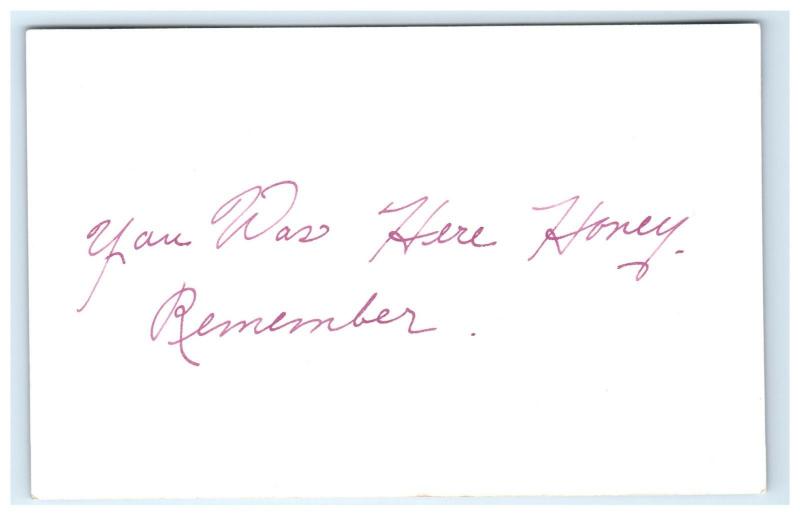 You Was Here Honey.
Remember.